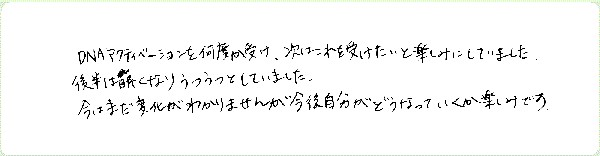 DNAアクティベーションを何度か受け、次はこれを受けたいと楽しみにしていました。
後半は眠くなりうつうつとしていました。
今はまだ変化がわかりませんが今後自分がどうなっていくか楽しみです